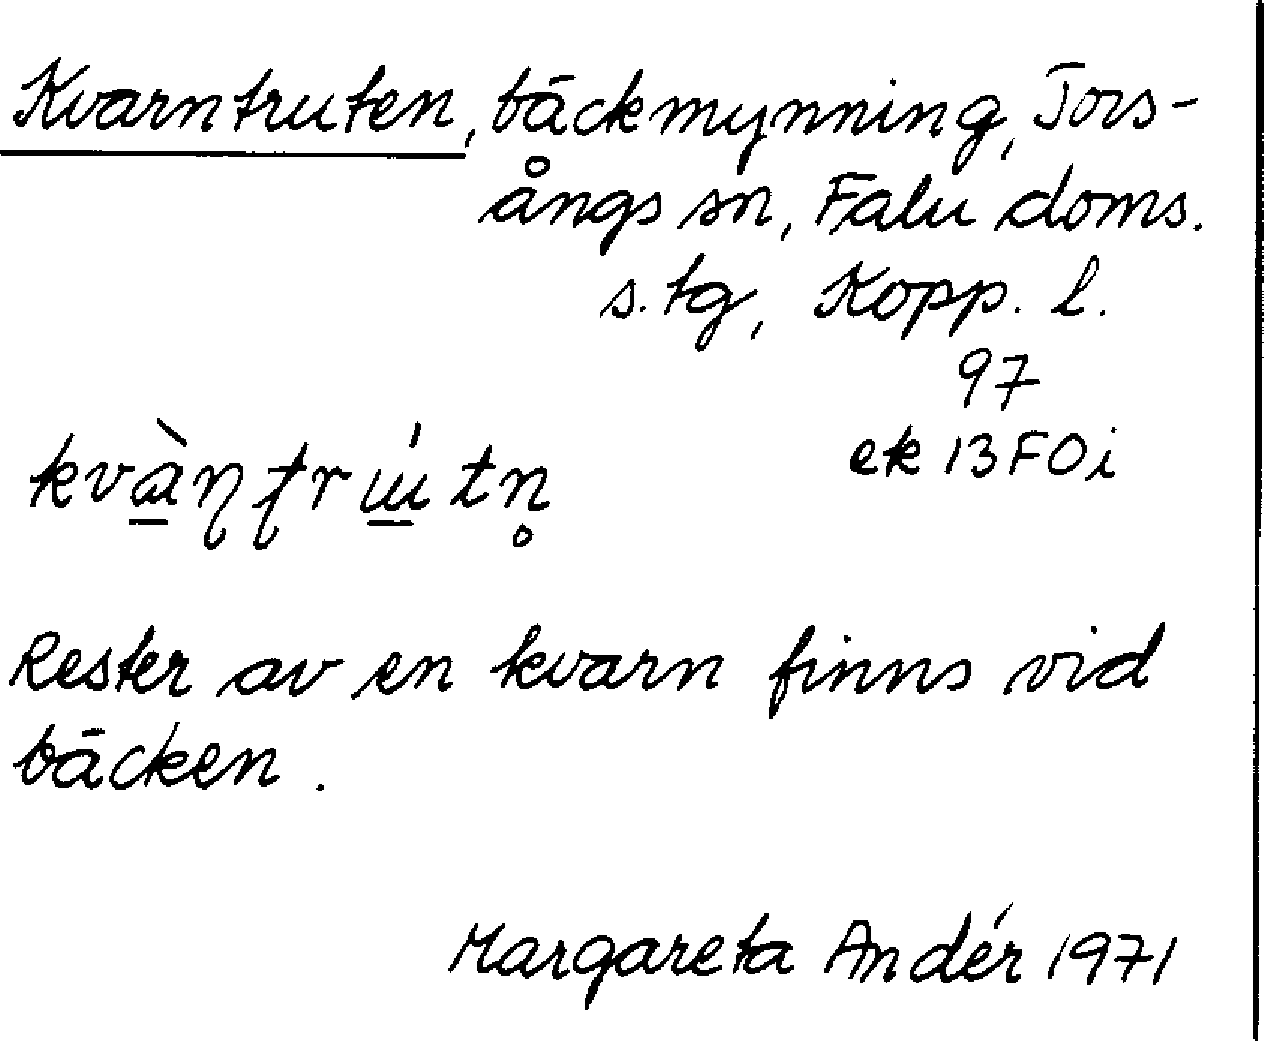 Kvarntruten, bäckmynning, Tors-
ångs sn, Falu doms.
s. tg, Kopp. l.
97
ek 13F0i
kvàɳʈrɯ́tn̥
Rester av en kvarn finns vid
bäcken.
Margareta Andér 1971